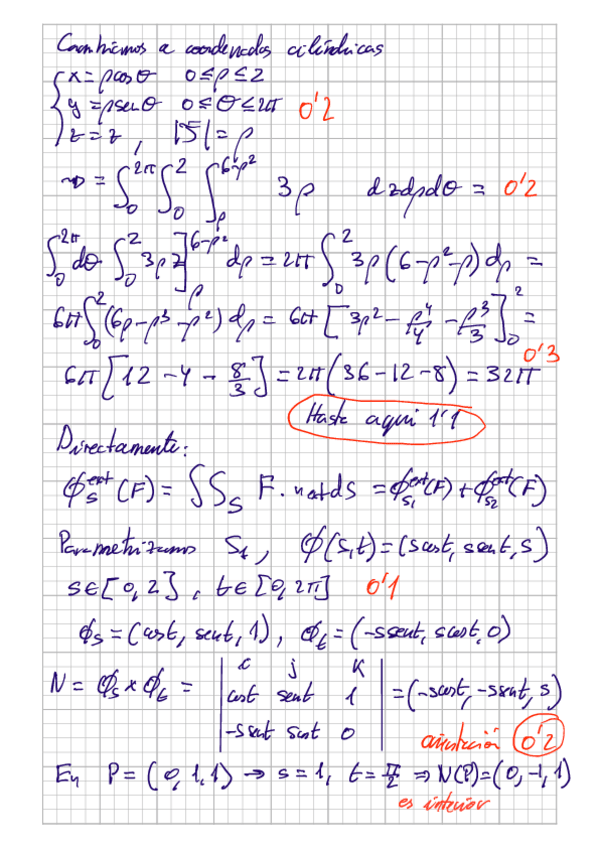 Cambiamos a coordenadas cilíndricas
x = ρcosθ 0≤ρ≤2
y = ρsenθ 0≤θ≤2π 0'2
z = z , |J| = ρ
⇝ = ∫₀^{2π} ∫₀^{2} ∫_ρ^{6-ρ²} 3ρ dzdρdθ = 0'2
∫₀^{2π} dθ ∫₀^{2} 3ρz]_ρ^{6-ρ²} dρ = 2π ∫₀^{2} 3ρ(6-ρ²-ρ)dρ =
6π∫₀^{2} (6ρ-ρ³-ρ²)dρ = 6π[3ρ² - ρ⁴/4 - ρ³/3]₀² =
0'3
6π[12 - 4 - 8/3] = 2π(36-12-8) = 32π
Hasta aquí 1'1
Directamente:
ϕ_S^{ext}(F) = ∫∫_S F·next dS = ϕ_{S₁}^{ext}(F) + ϕ_{S₂}^{ext}(F)
Parametrizamos S₁, ϕ(s,t) = (scost, ssent, s)
s∈[0,2], t∈[0,2π] 0'1
ϕ_s = (cost, sent, 1), ϕ_t = (-ssent, scost, 0)
i j k
N = ϕ_s × ϕ_t = | cost sent 1 | = (-scost, -ssent, s)
-ssent scost 0
orientación 0'2
En P = (0,1,1) → s=1, t=π/2 ⇒ N(P)=(0,-1,1)
es interior